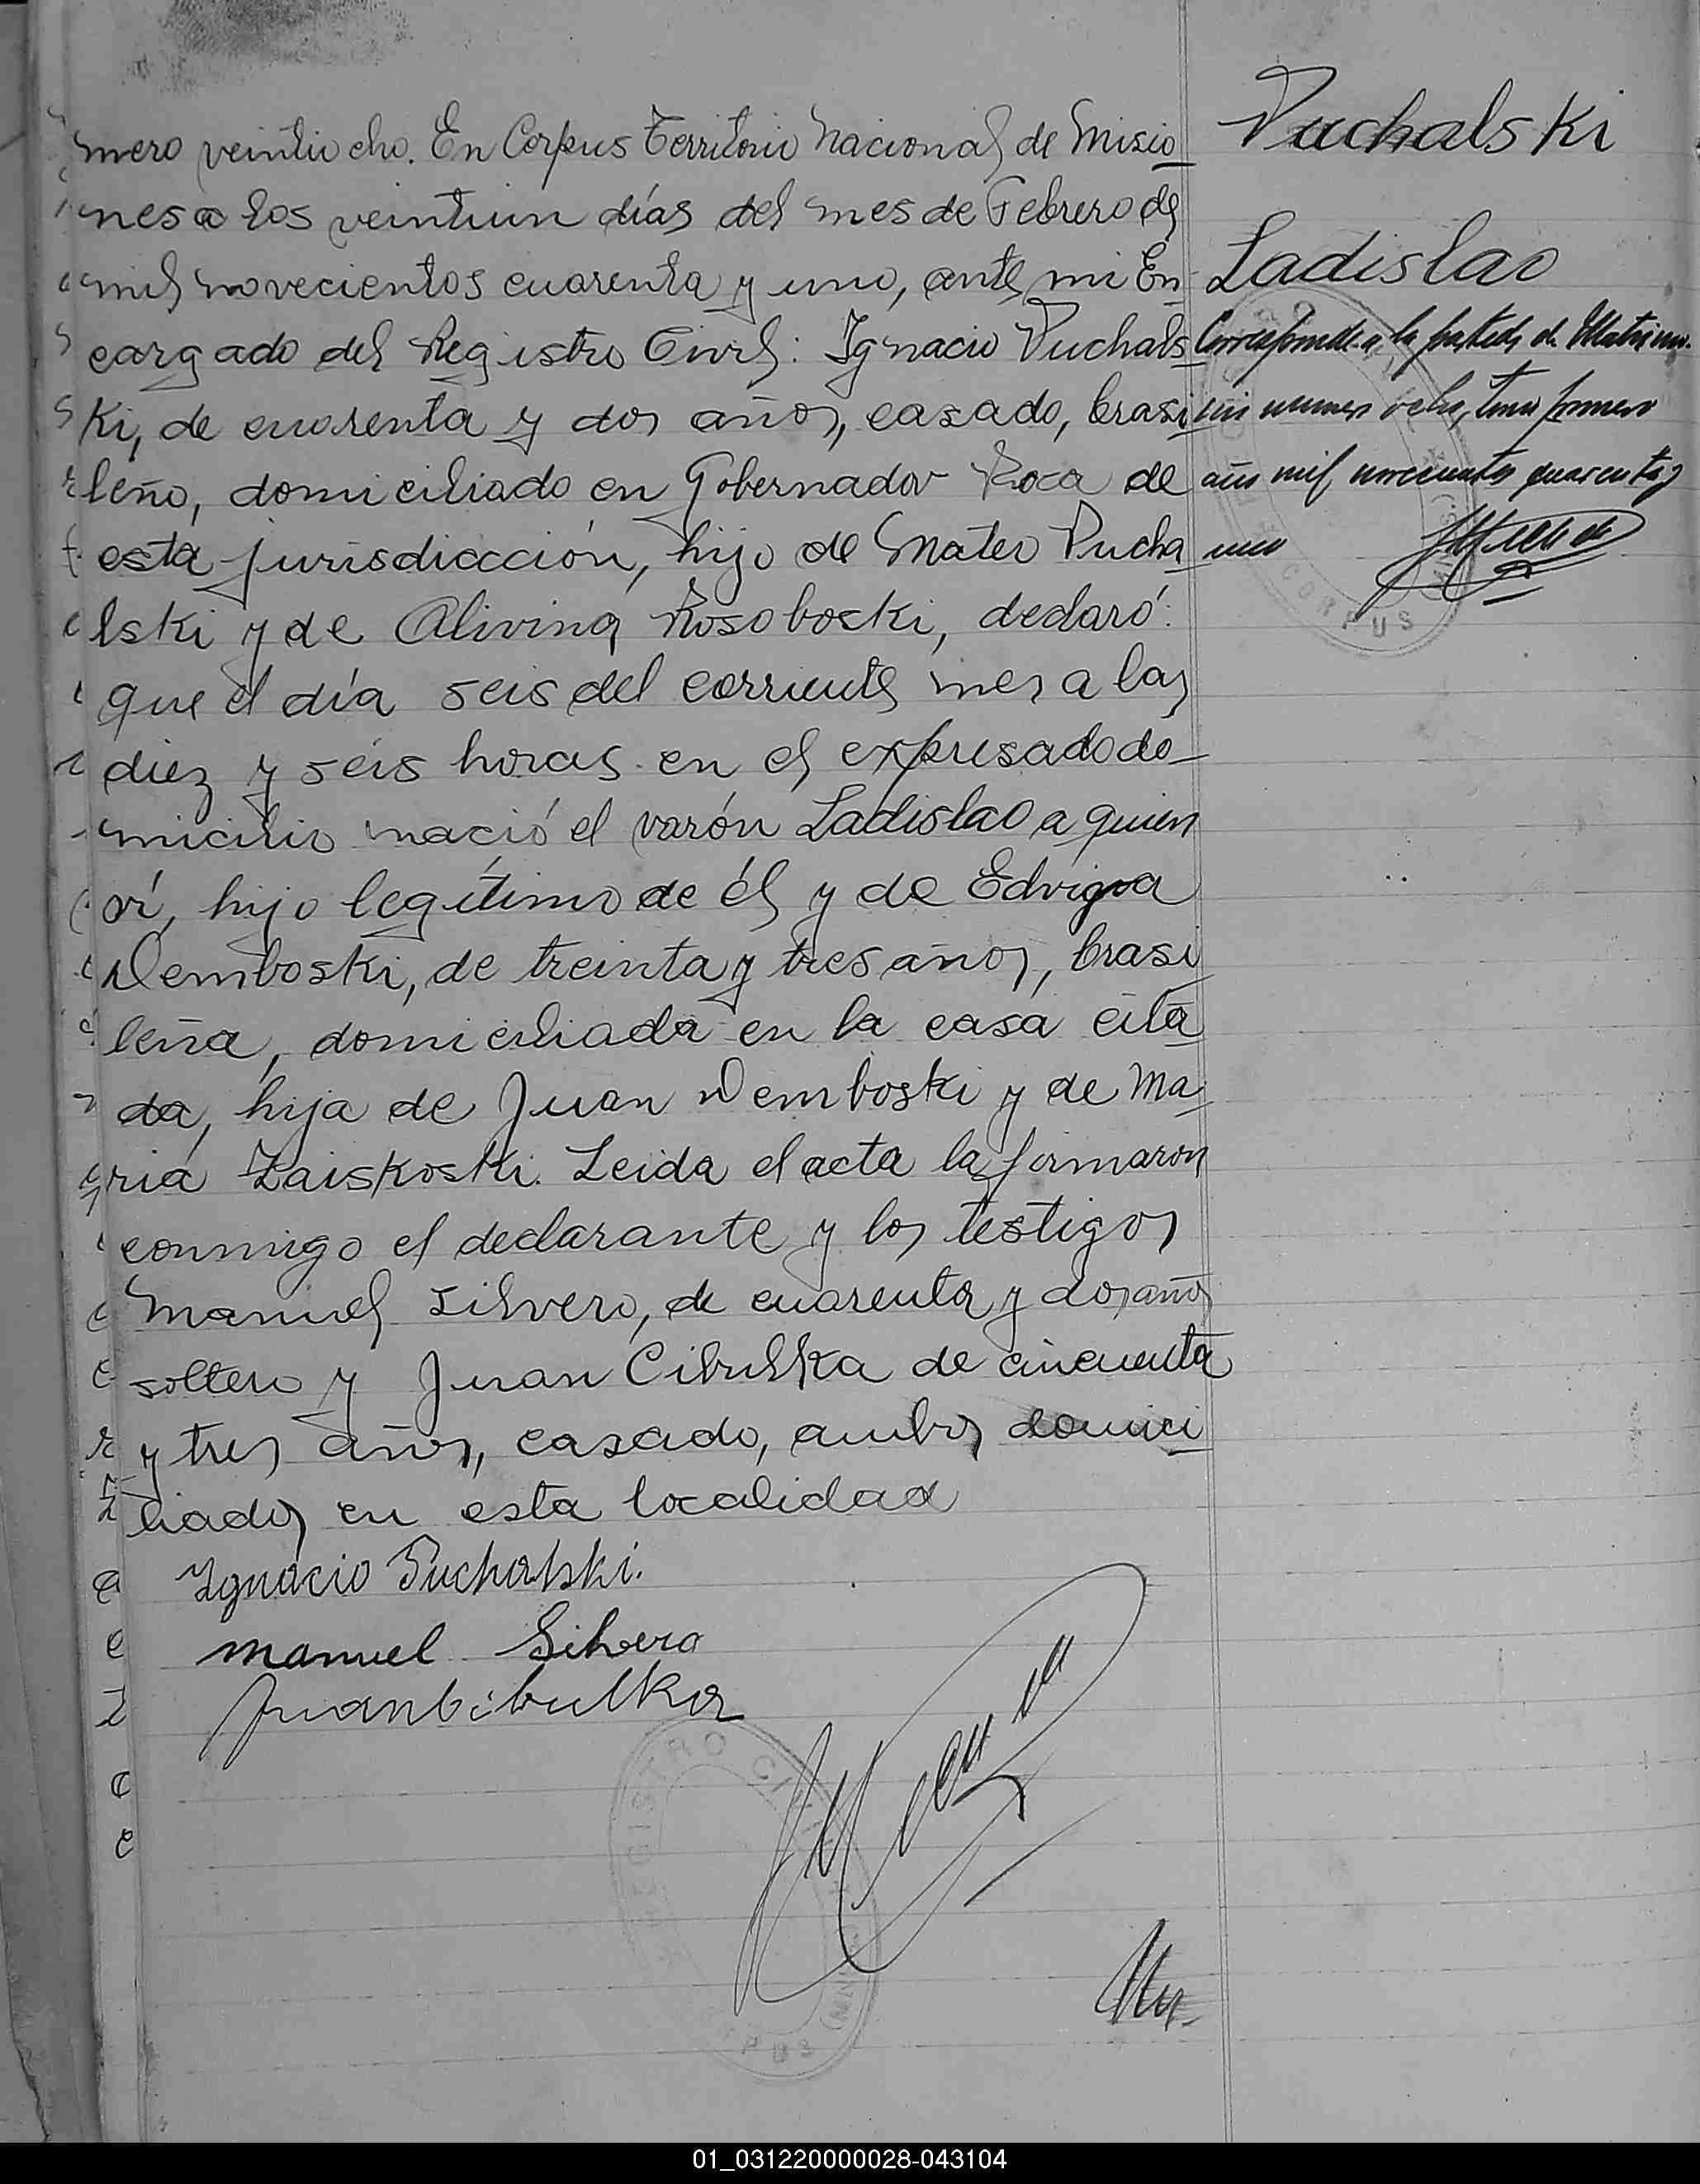 mero veintiocho. En Corpus Territorio Nacional de Misio
nes a los veintiun días del mes de Febrero de
mil novecientos cuarenta y uno, ante mi En
cargado del Registro Civil: Ignacio Puchals
ki, de cuarenta y dos años, casado, brasi
leño, domiciliado en Gobernador Roca de
esta jurisdicción, hijo de Mateo Pucha
lski y de Alivina Rosoboski, declaró:
que el día seis del corriente mes a las
diez y seis horas en el expresado do
micilio nació el varón Ladislao a quien
ví, hijo legítimo de él y de Edvigva
Demboski, de treinta y tres años, brasi
leña, domiciliada en la casa cita
da, hija de Juan Demboski y de Ma
ria Zaiskoski. Leida el acta la firmaron
conmigo el declarante y los testigos
Manuel Silvero, de cuarenta y dos años
soltero y Juan Cibulka de cincuenta
y tres años, casado, ambos domici
liados en esta localidad
Ignacio Puchalski.
manuel Silvero
Juan Cibulka
REGISTRO CIVIL
Puchalski
Ladislao
Corresponde a la partida de Matrimo
nio numero ocho, tomo primero
año mil novecientos cuarenta y
uno
CORPUS
01_031220000028-043104